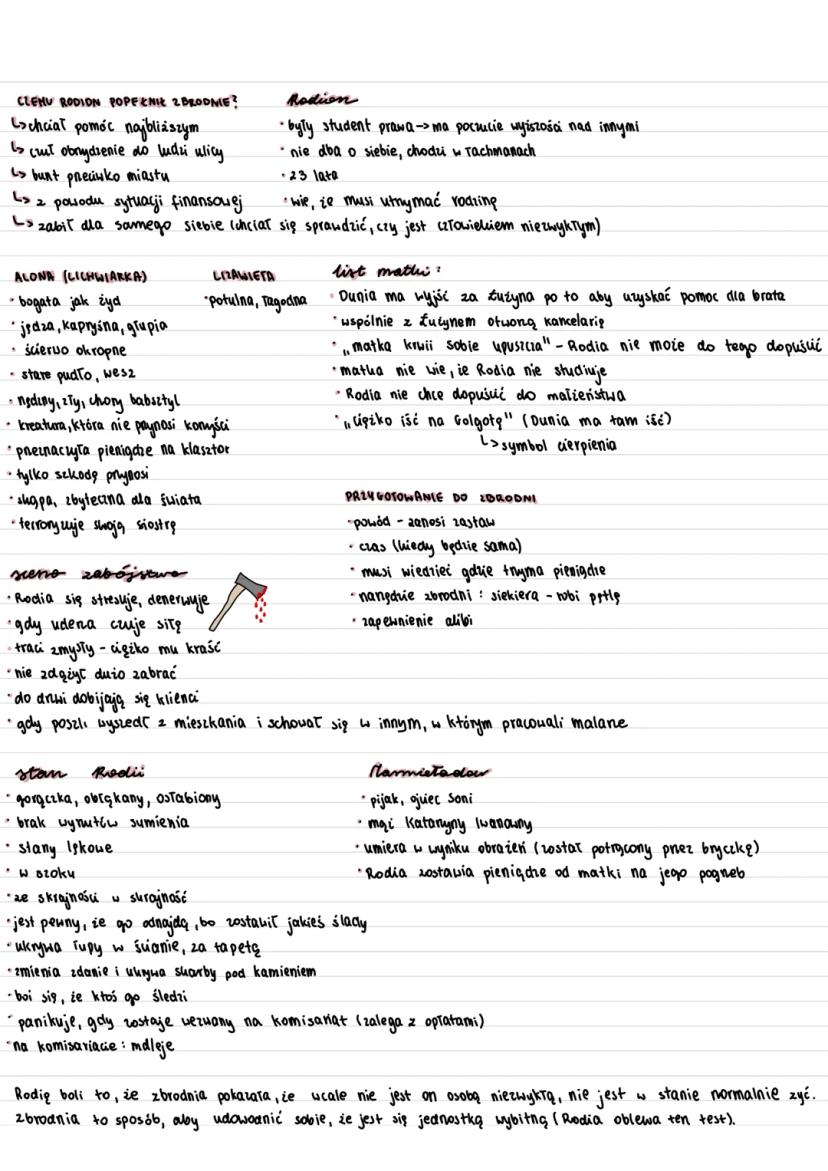 CZEMU RODION POPEŁNIŁ ZBRODNIE?
↳ chciał pomóc najbliższym
↳ czuł obrzydzenie do ludzi ulicy
↳ bunt przeciwko miastu
↳ z powodu sytuacji finansowej
↳ zabił dla samego siebie (chciał się sprawdzić, czy jest człowiekiem niezwykłym)
Rodion
• były student prawa -> ma poczucie wyższości nad innymi
• nie dba o siebie, chodzi w łachmanach
• 23 lata
• wie, że musi utrzymać rodzinę
ALONA (LICHWIARKA)
• bogata jak żyd
• jędza, kapryśna, głupia
• ścierwo okropne
• stare pudło, wesz
• nędzny, zły, chory babsztyl
• kreatura, która nie przynosi korzyści
• przeznaczyła pieniądze na klasztor
• tylko szkodę przynosi
• skąpa, zbyteczna dla świata
• terroryzuje swoją siostrę
LIZAWIETA
• potulna, łagodna
list matki:
• Dunia ma wyjść za Łużyna po to aby uzyskać pomoc dla brata
• wspólnie z Łużynem otworzą kancelarię
• „matka krwii sobie upuszcza" - Rodia nie może do tego dopuścić
• matka nie wie, że Rodia nie studiuje
• Rodia nie chce dopuścić do małżeństwa
• „ciężko iść na Golgotę" (Dunia ma tam iść)
↳ symbol cierpienia
PRZYGOTOWANIE DO ZBRODNI
• powód - zanosi zastaw
• czas (kiedy będzie sama)
• musi wiedzieć gdzie trzyma pieniądze
• narzędzie zbrodni: siekiera - robi pętlę
• zapewnienie alibi
scena zabójstwa
• Rodia się stresuje, denerwuje
• gdy uderza czuje siłę
• traci zmysły - ciężko mu kraść
• nie zdążył dużo zabrać
• do drzwi dobijają się klienci
• gdy poszli wyszedł z mieszkania i schował się w innym, w którym pracowali malarze
stan Rodii
• gorączka, obłąkany, osłabiony
• brak wyrzutów sumienia
• stany lękowe
• w szoku
• ze skrajności w skrajność
• jest pewny, że go odnajdą, bo zostawił jakieś ślady
• ukrywa łupy w ścianie, za tapetą
• zmienia zdanie i ukrywa skarby pod kamieniem
• boi się, że ktoś go śledzi
• panikuje, gdy zostaje wezwany na komisariat (zalega z opłatami)
• na komisariacie: mdleje
Marmieładow
• pijak, ojciec Soni
• mąż Katarzyny Iwanowny
• umiera w wyniku obrażeń (został potrącony przez bryczkę)
• Rodia zostawia pieniądze od matki na jego pogrzeb
Rodię boli to, że zbrodnia pokazała, że wcale nie jest on osobą niezwykłą, nie jest w stanie normalnie żyć.
Zbrodnia to sposób, aby udowodnić sobie, że jest się jednostką wybitną (Rodia oblewa ten test).